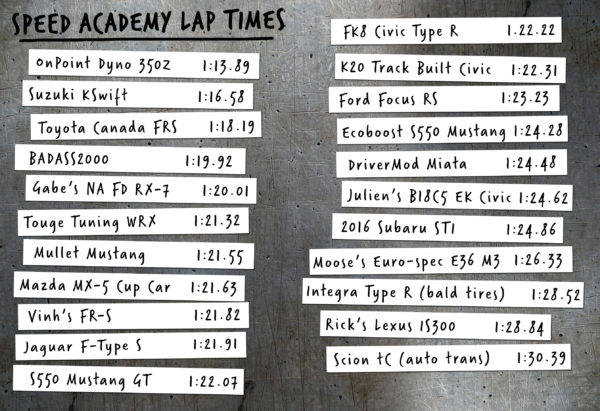 SPEED ACADEMY LAP TIMES
onPoint Dyno 350Z 1:13.89
Suzuki KSwift 1:16.58
Toyota Canada FRS 1:18.19
BADASS2000 1:19.92
Gabe's NA FD RX-7 1:20.01
Touge Tuning WRX 1:21.32
Mullet Mustang 1:21.55
Mazda MX-5 Cup Car 1:21.63
Vinh's FR-S 1:21.82
Jaguar F-Type S 1:21.91
S550 Mustang GT 1:22.07
FK8 Civic Type R 1.22.22
K20 Track Built Civic 1:22.31
Ford Focus RS 1:23.23
Ecoboost S550 Mustang 1:24.28
DriverMod Miata 1:24.48
Julien's B18C5 EK Civic 1:24.62
2016 Subaru STI 1:24.86
Moose's Euro-spec E36 M3 1:26.33
Integra Type R (bald tires) 1:28.52
Rick's Lexus IS300 1:28.84
Scion tC (auto trans) 1:30.39